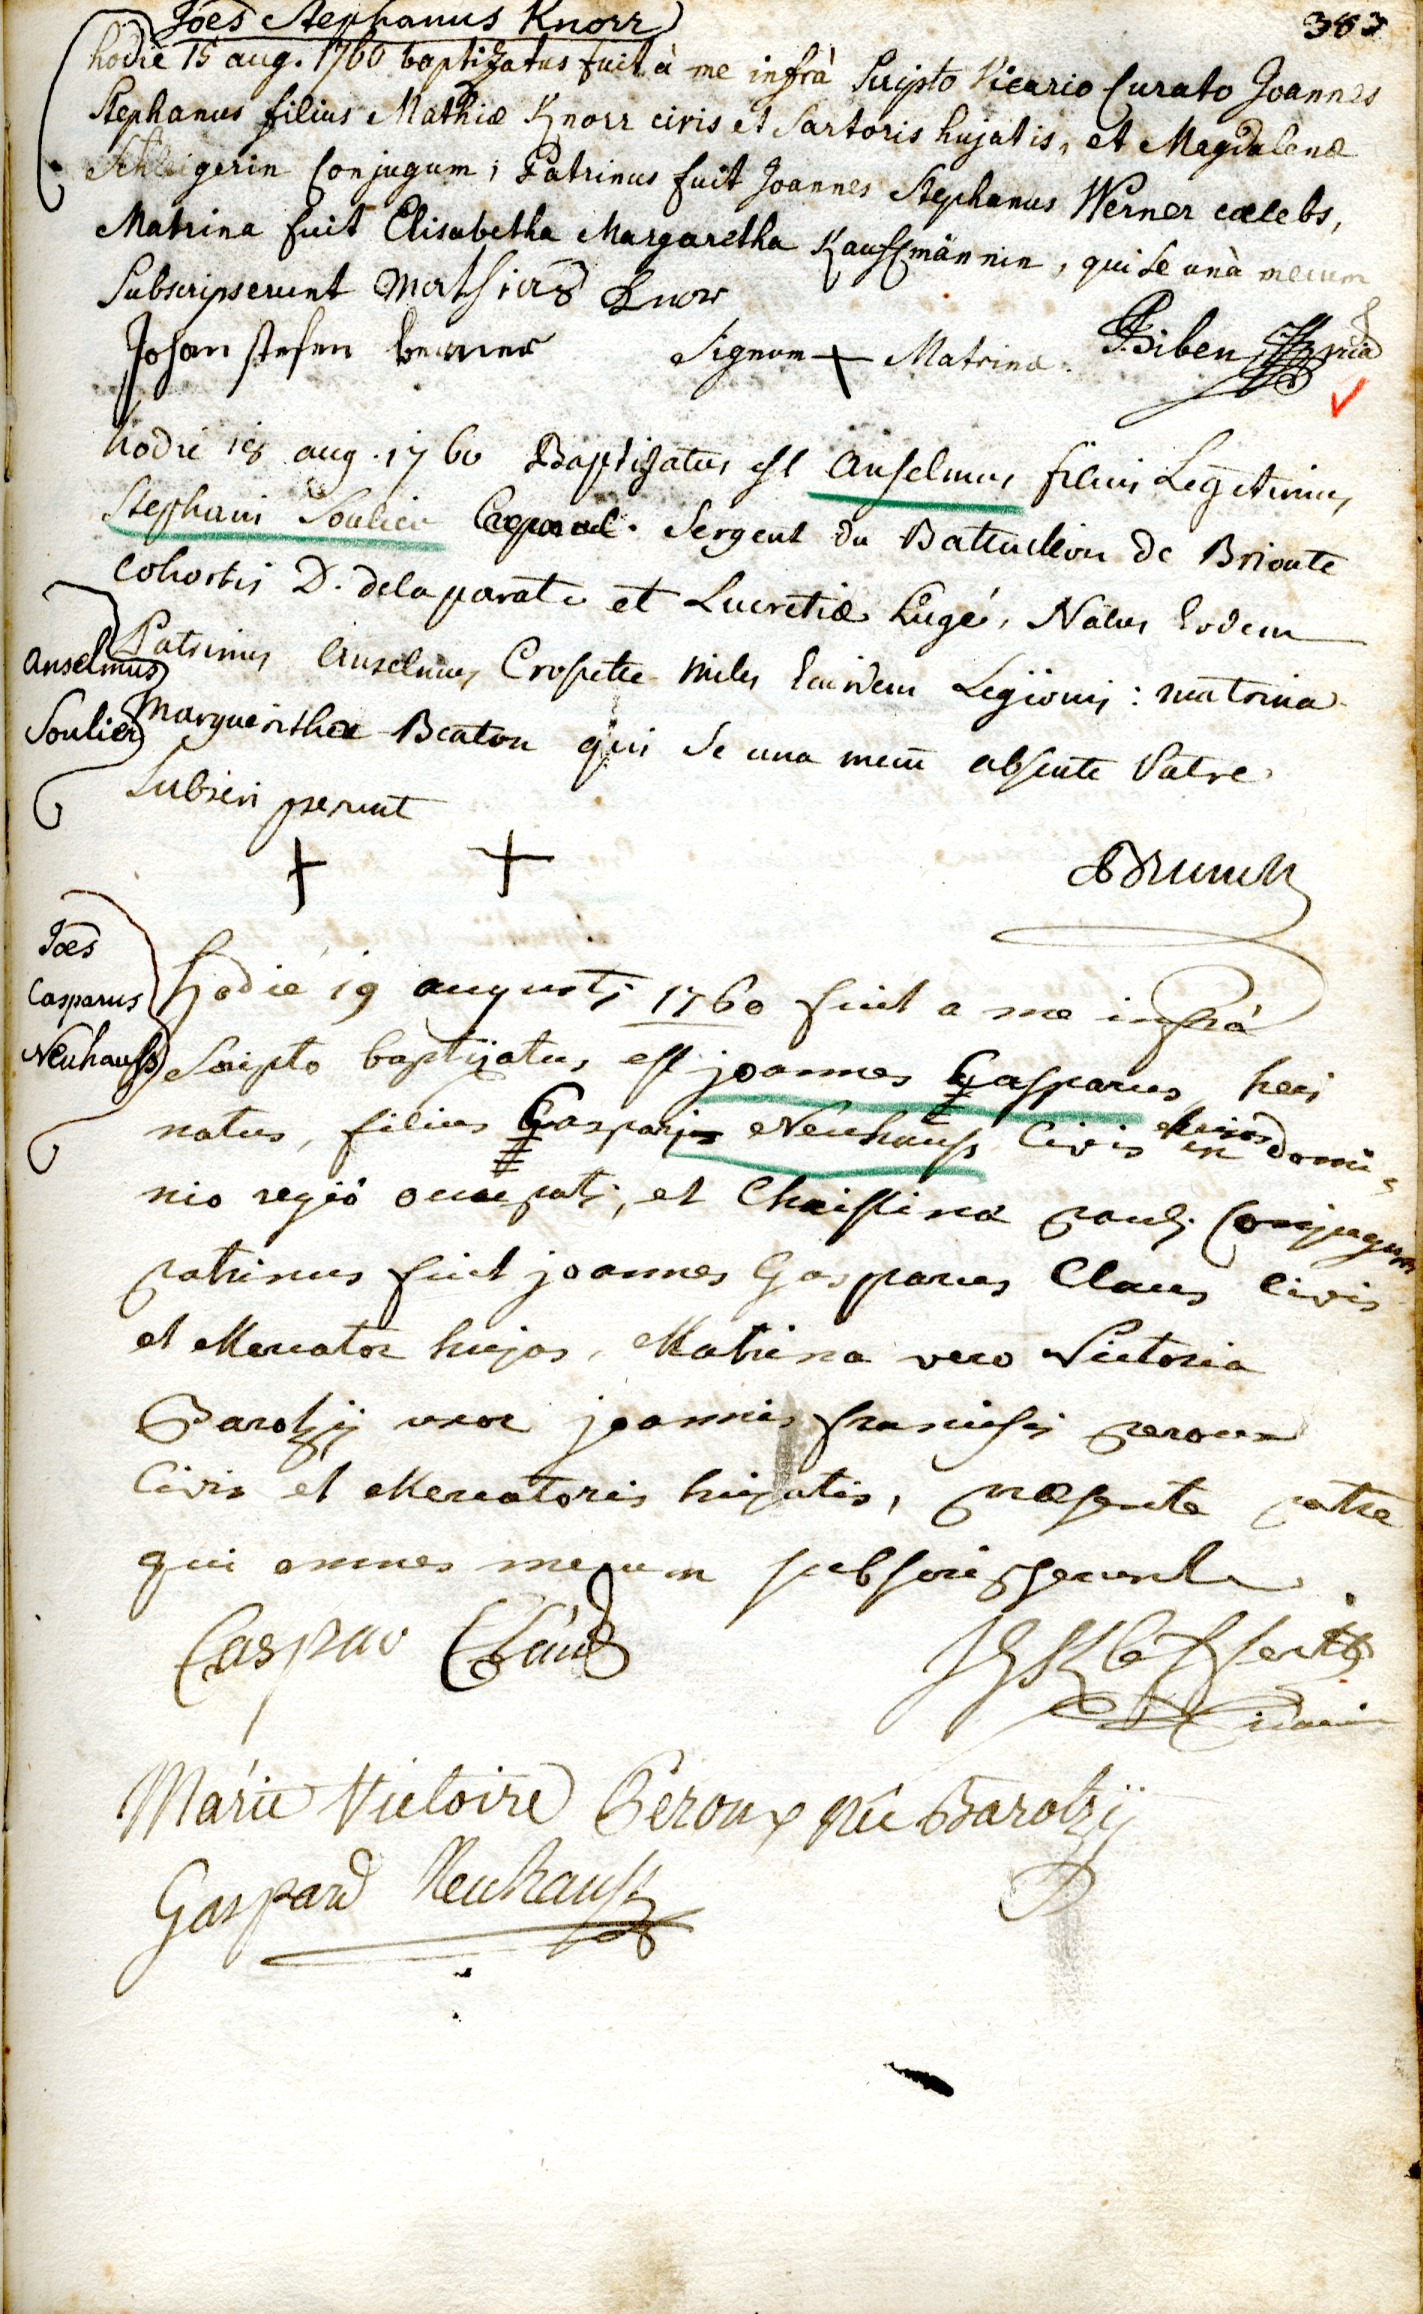 383
Joes Stephanus Knorr
hodie 15 aug. 1760 baptizatus fuit à me infrà scripto Vicario Curato Joannes
Stephanus filius Mathiæ Knorr civis et Sartoris hujatis, et Magdalenæ
gerin Conjugum; Patrinus fuit Joannes Stephanus Werner cælebs,
Matrina fuit Elisabetha Margaretha Kauffmännin, qui se unà mecum
Subscripserunt Mathias Knor
Johan stefen werner Signum + Matrina.
hodie 18 aug. 1760 Baptizatus est Anselmus filius Legitimus
Stephani Soulier Caporal. Sergent du Battaillon de Brioute
Cohortis D. delaparate et Lucretiæ Lugé, Natus Eodem
Patrinus Anselmus Cropette miles Eiusdem Legionis: matrina
Margueritha Beaton qui se una mecū absente Patre
Subscripserunt
Anselmus
Soulier
+ +
Joes
Casparus
Neuhauss
hodie 19 augusti 1760 fuit a me infrà
Scripto baptizatus est joannes Gasparus heri
natus, filius Gasparis Neuhauss Civis in domi
nio regio occupati, et Christina pauli Conjugum
patrinus fuit joannes Gasparus Claus Civis
et Mercator hujas, Matrina vero Victoria
Barotzij uxor joannis francisci peroux
Civis et Mercatoris hujatis, præsente patre
qui omnes mecum subscripserunt
Caspar Claus
Marie Victoire Péroux née Barotzij
Gaspard Neuhauss